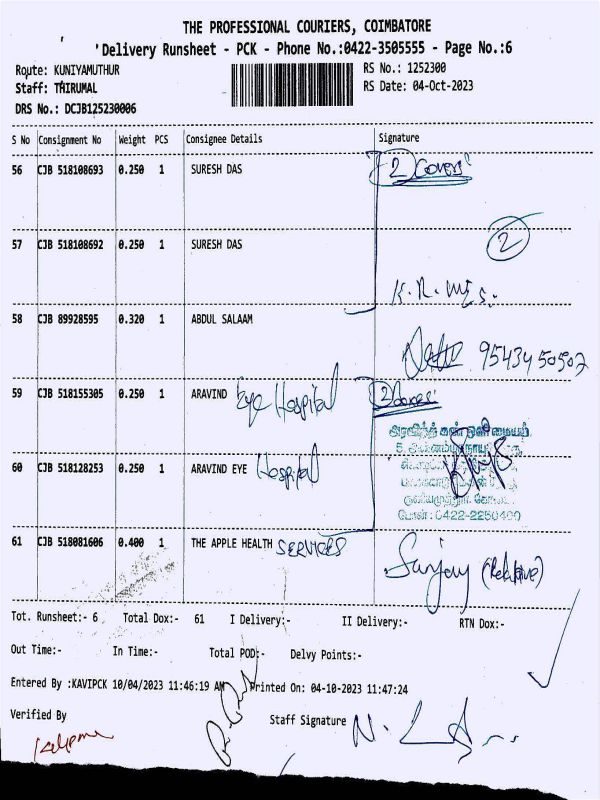 THE PROFESSIONAL COURIERS, COIMBATORE
'Delivery Runsheet - PCK - Phone No.:0422-3505555 - Page No.:6
Route: KUNIYAMUTHUR RS No.: 1252300
Staff: TRIRUMAL RS Date: 04-Oct-2023
DRS No.: DCJB125230006
S No Consignment No Weight PCS Consignee Details Signature
56 CJB 518108693 0.250 1 SURESH DAS 2 Covers
57 CJB 518108692 0.250 1 SURESH DAS 2
K.R.
58 CJB 89928595 0.320 1 ABDUL SALAAM
9543450502
59 CJB 518155305 0.250 1 ARAVIND Eye Hospital 2 Covers
அரவிந்த் கண் ஒளி மையம்
60 CJB 518128253 0.250 1 ARAVIND EYE Hospital
குனியமுத்தூர்
போன்: 0422-2250400
61 CJB 518081606 0.400 1 THE APPLE HEALTH SERVICES Sanjay (Relative)
Tot. Runsheet:- 6 Total Dox:- 61 I Delivery:- II Delivery:- RTN Dox:-
Out Time:- In Time:- Total POD:- Delvy Points:-
Entered By :KAVIPCK 10/04/2023 11:46:19 AM Printed On: 04-10-2023 11:47:24
Verified By Staff Signature